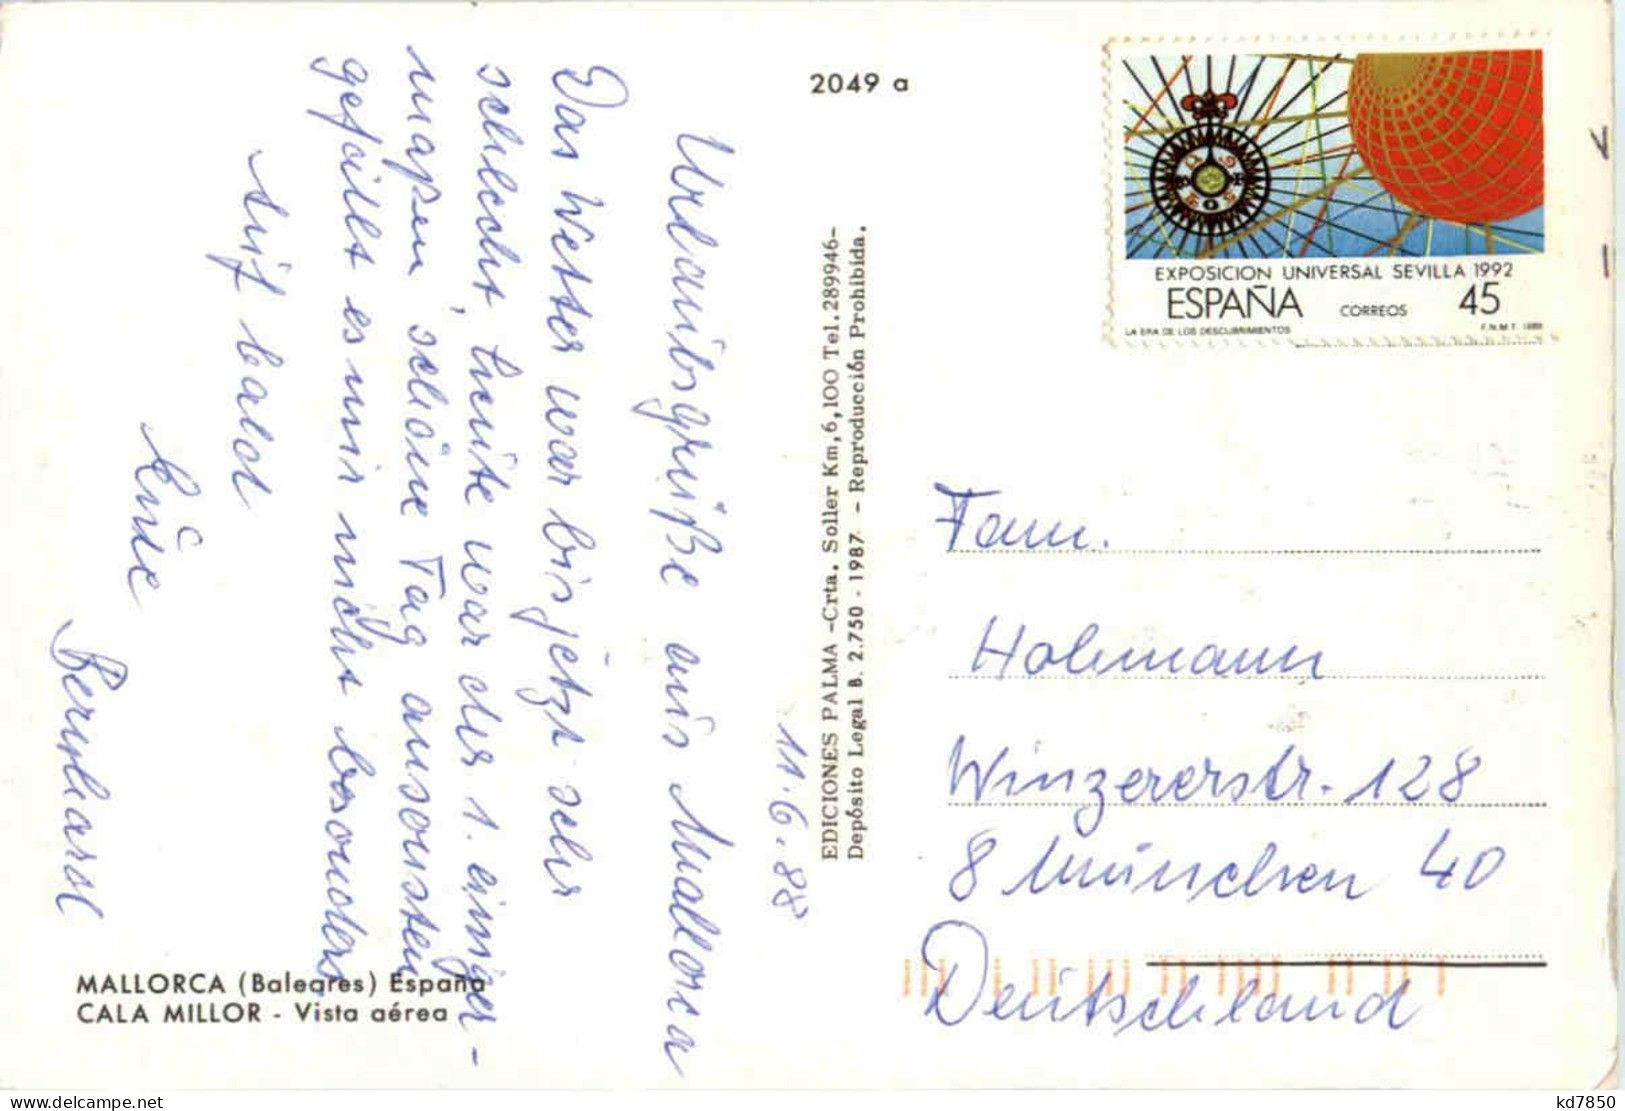 2049 a
11.6.88
Urlaubsgrüße aus Mallorca
Das Wetter war bis jetzt sehr
schlecht, heute war der 1. einiger-
maßen schöne Tag ansonsten
gefällt es mir nicht besonders
bis bald
Bernhard
MALLORCA (Baleares) España
CALA MILLOR - Vista aérea
EDICIONES PALMA -Crta. Soller Km, 6,100 Tel. 289946-
Depósito Legal B. 2.750 - 1987. - Reproducción Prohibida.
EXPOSICION UNIVERSAL SEVILLA 1992
ESPAÑA CORREOS 45
LA ERA DE LOS DESCUBRIMIENTOS F.N.M.T. 1988
Fam.
Hohmann
Winzererstr. 128
8 München 40
Deutschland
kd7850